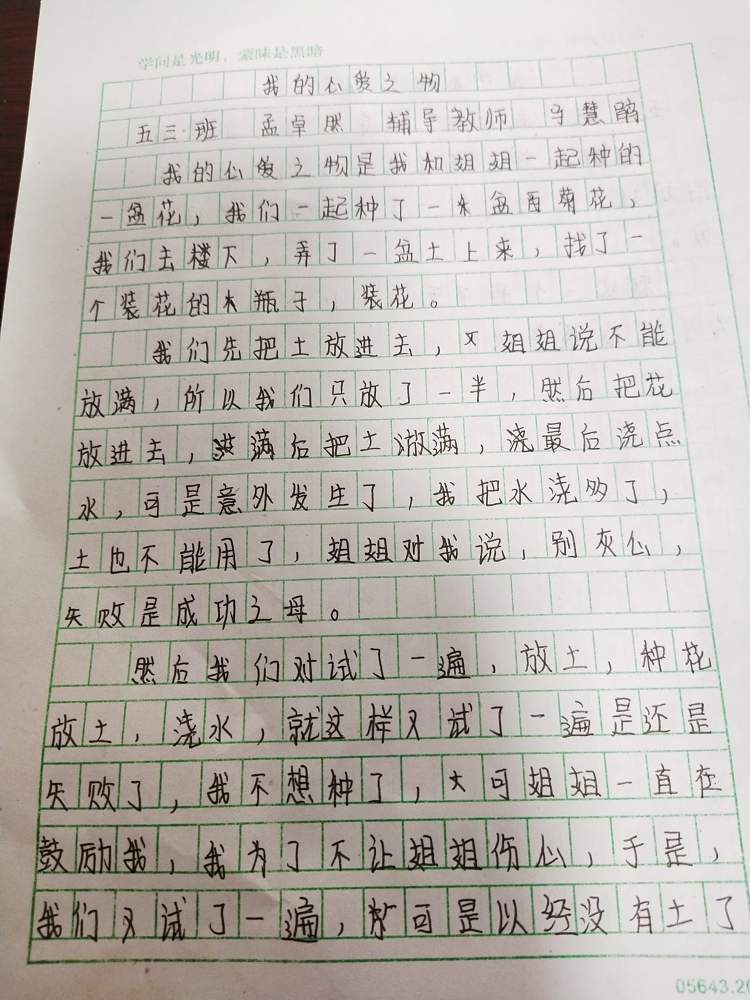 学问是光明，蒙昧是黑暗
我的心爱之物
五三班 孟卓然 辅导教师 于慧
我的心爱之物是我和姐姐一起种的
一盆花，我们一起种了一盆百菊花，
我们去楼下，弄了一盆土上来，找了一
个装花的大瓶子，装花。
我们先把土放进去，姐姐说不能
放满，所以我们只放了一半，然后把花
放进去，满后把土满，浇最后浇点
水，可是意外发生了，我把水浇多了，
土也不能用了，姐姐对我说，别灰心，
失败是成功之母。
然后我们对试了一遍，放土，种花
放土，浇水，就这样又试了一遍是还是
失败了，我不想种了，可姐姐一直在
鼓励我，我为了不让姐姐伤心，于是，
我们又试了一遍，可是以经没有土了
05643.20